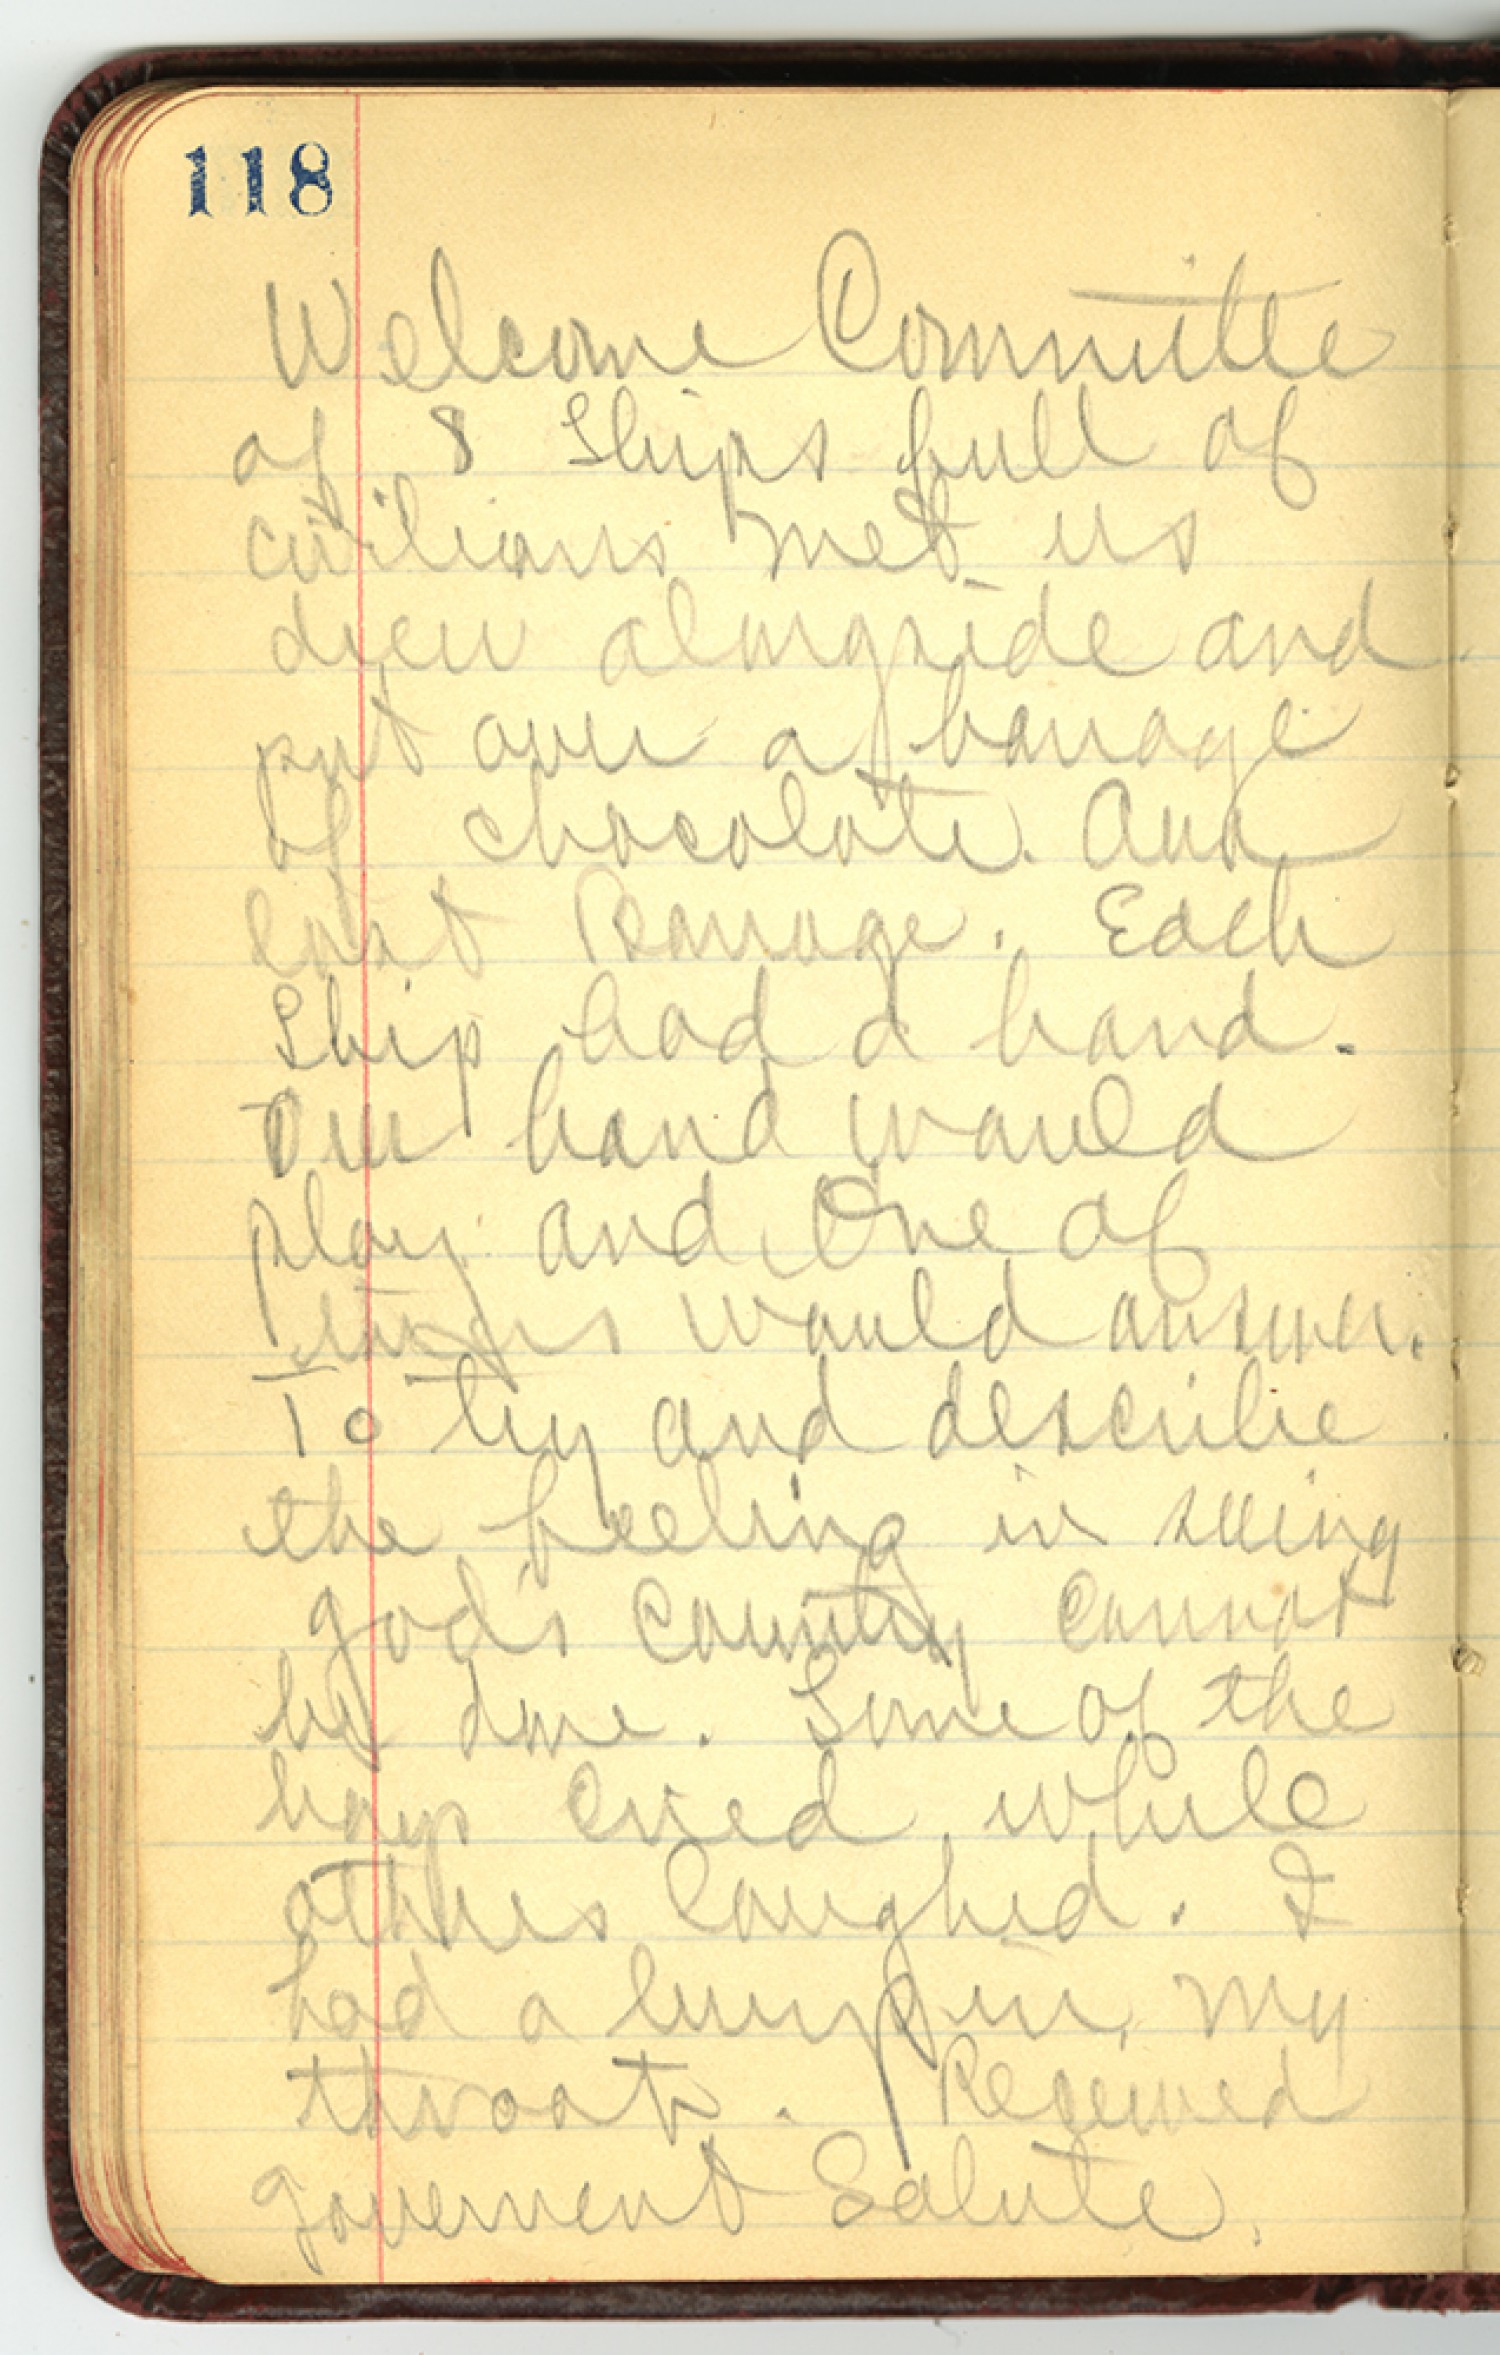 118
Welcome Committe
of 8 Ships full of
civilians met us
drew alongside and
put over a barrage
of chocolate. Our
last Barrage. Each
Ship had a band.
Our band would
play and One of
theirs would answer.
To try and describe
the feeling in seeing
god's country cannot
be done. Some of the
boys cried while
others laughed. I
had a lump in my
throat. Received
goverment Salute.